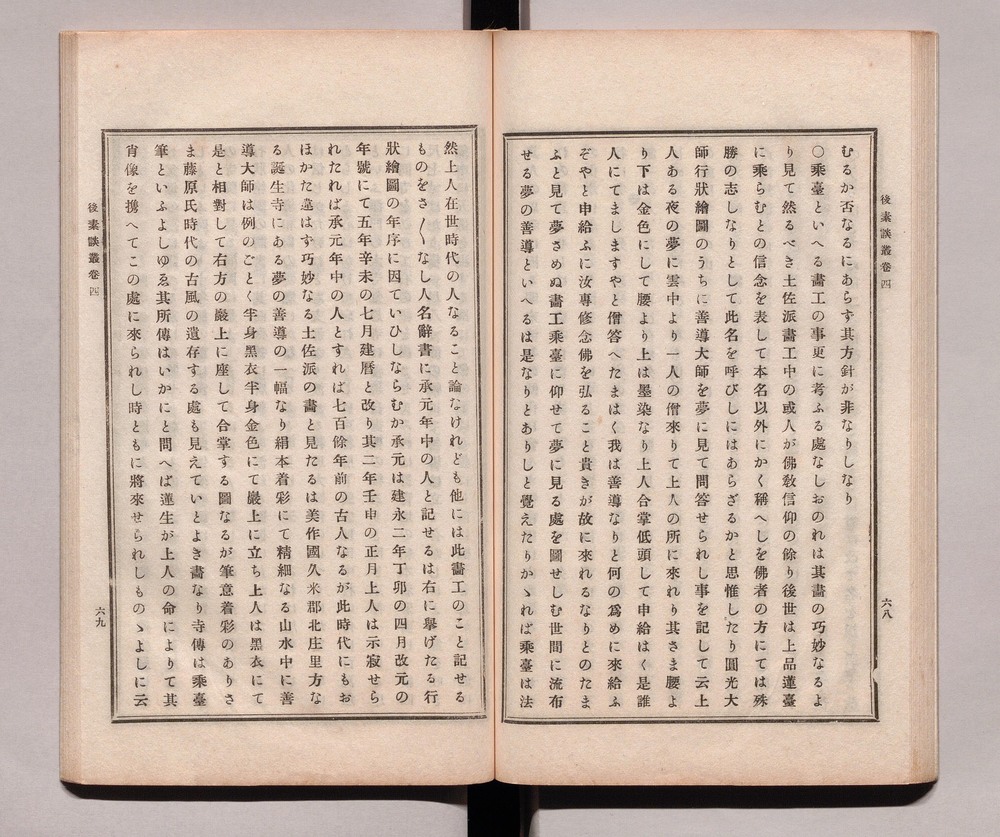 後素談叢卷四
六八
むるか否なるにあらず其方針が非なりしなり
〇乘臺といへる畵工の事更に考ふる處なしおのれは其畵の巧妙なるよ
り見て然るべき土佐派畵工中の或人が佛敎信仰の餘り後世は上品蓮臺
に乘らむとの信念を表して本名以外にかく稱へしを佛者の方にては殊
勝の志しなりとして此名を呼びしにはあらざるかと思惟したり圓光大
師行狀繪圖のうちに善導大師を夢に見て問答せられし事を記して云上
人ある夜の夢に雲中より一人の僧來りて上人の所に來れり其さま腰よ
り下は金色にして腰より上は墨染なり上人合掌低頭して申給はく是誰
人にてましますやと僧答へたまはく我は善導なりと何の爲めに來給ふ
ぞやと申給ふに汝專修念佛を弘ること貴きが故に來れるなりとのたま
ふと見て夢さめぬ畵工乘臺に仰せて夢に見る處を圖せしむ世間に流布
せる夢の善導といへるは是なりとありしと覺えたりかゝれば乘臺は法
然上人在世時代の人なること論なけれども他には此畵工のこと記せる
ものをさ〳〵なし人名辭書に承元年中の人と記せるは右に擧げたる行
狀繪圖の年序に因ていひしならむか承元は建永二年丁卯の四月改元の
年號にて五年辛未の七月建曆と改り其二年壬申の正月上人は示寂せら
れたれば承元年中の人とすれば七百餘年前の古人なるが此時代にもお
ほかた違はず巧妙なる土佐派の畵と見たるは美作國久米郡北庄里方な
る誕生寺にある夢の善導の一幅なり絹本着彩にて精細なる山水中に善
導大師は例のごとく半身黑衣半身金色にて巖上に立ち上人は黑衣にて
是と相對して右方の巖上に座して合掌する圖なるが筆意着彩のありさ
ま藤原氏時代の古風の遺存する處も見えていとよき畵なり寺傳は乘臺
筆といふよしゆゑ其所傳はいかにと問へば蓮生が上人の命によりて其
肖像を携へてこの處に來られし時ともに將來せられしものゝよしに云
後素談叢卷四
六九